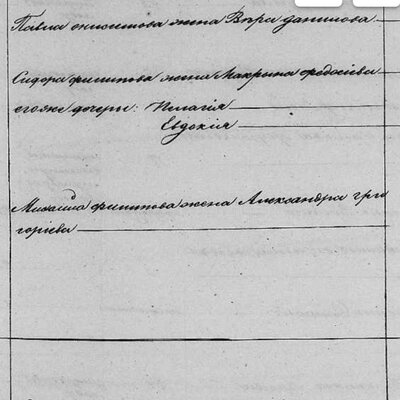 Павла онисимова жена Вѣра данилова
Сидора филипова жена Макрина федосіева
егоже дочери: Пелагія
Евдокія
Михаила филипова жена Александра гри
горіева